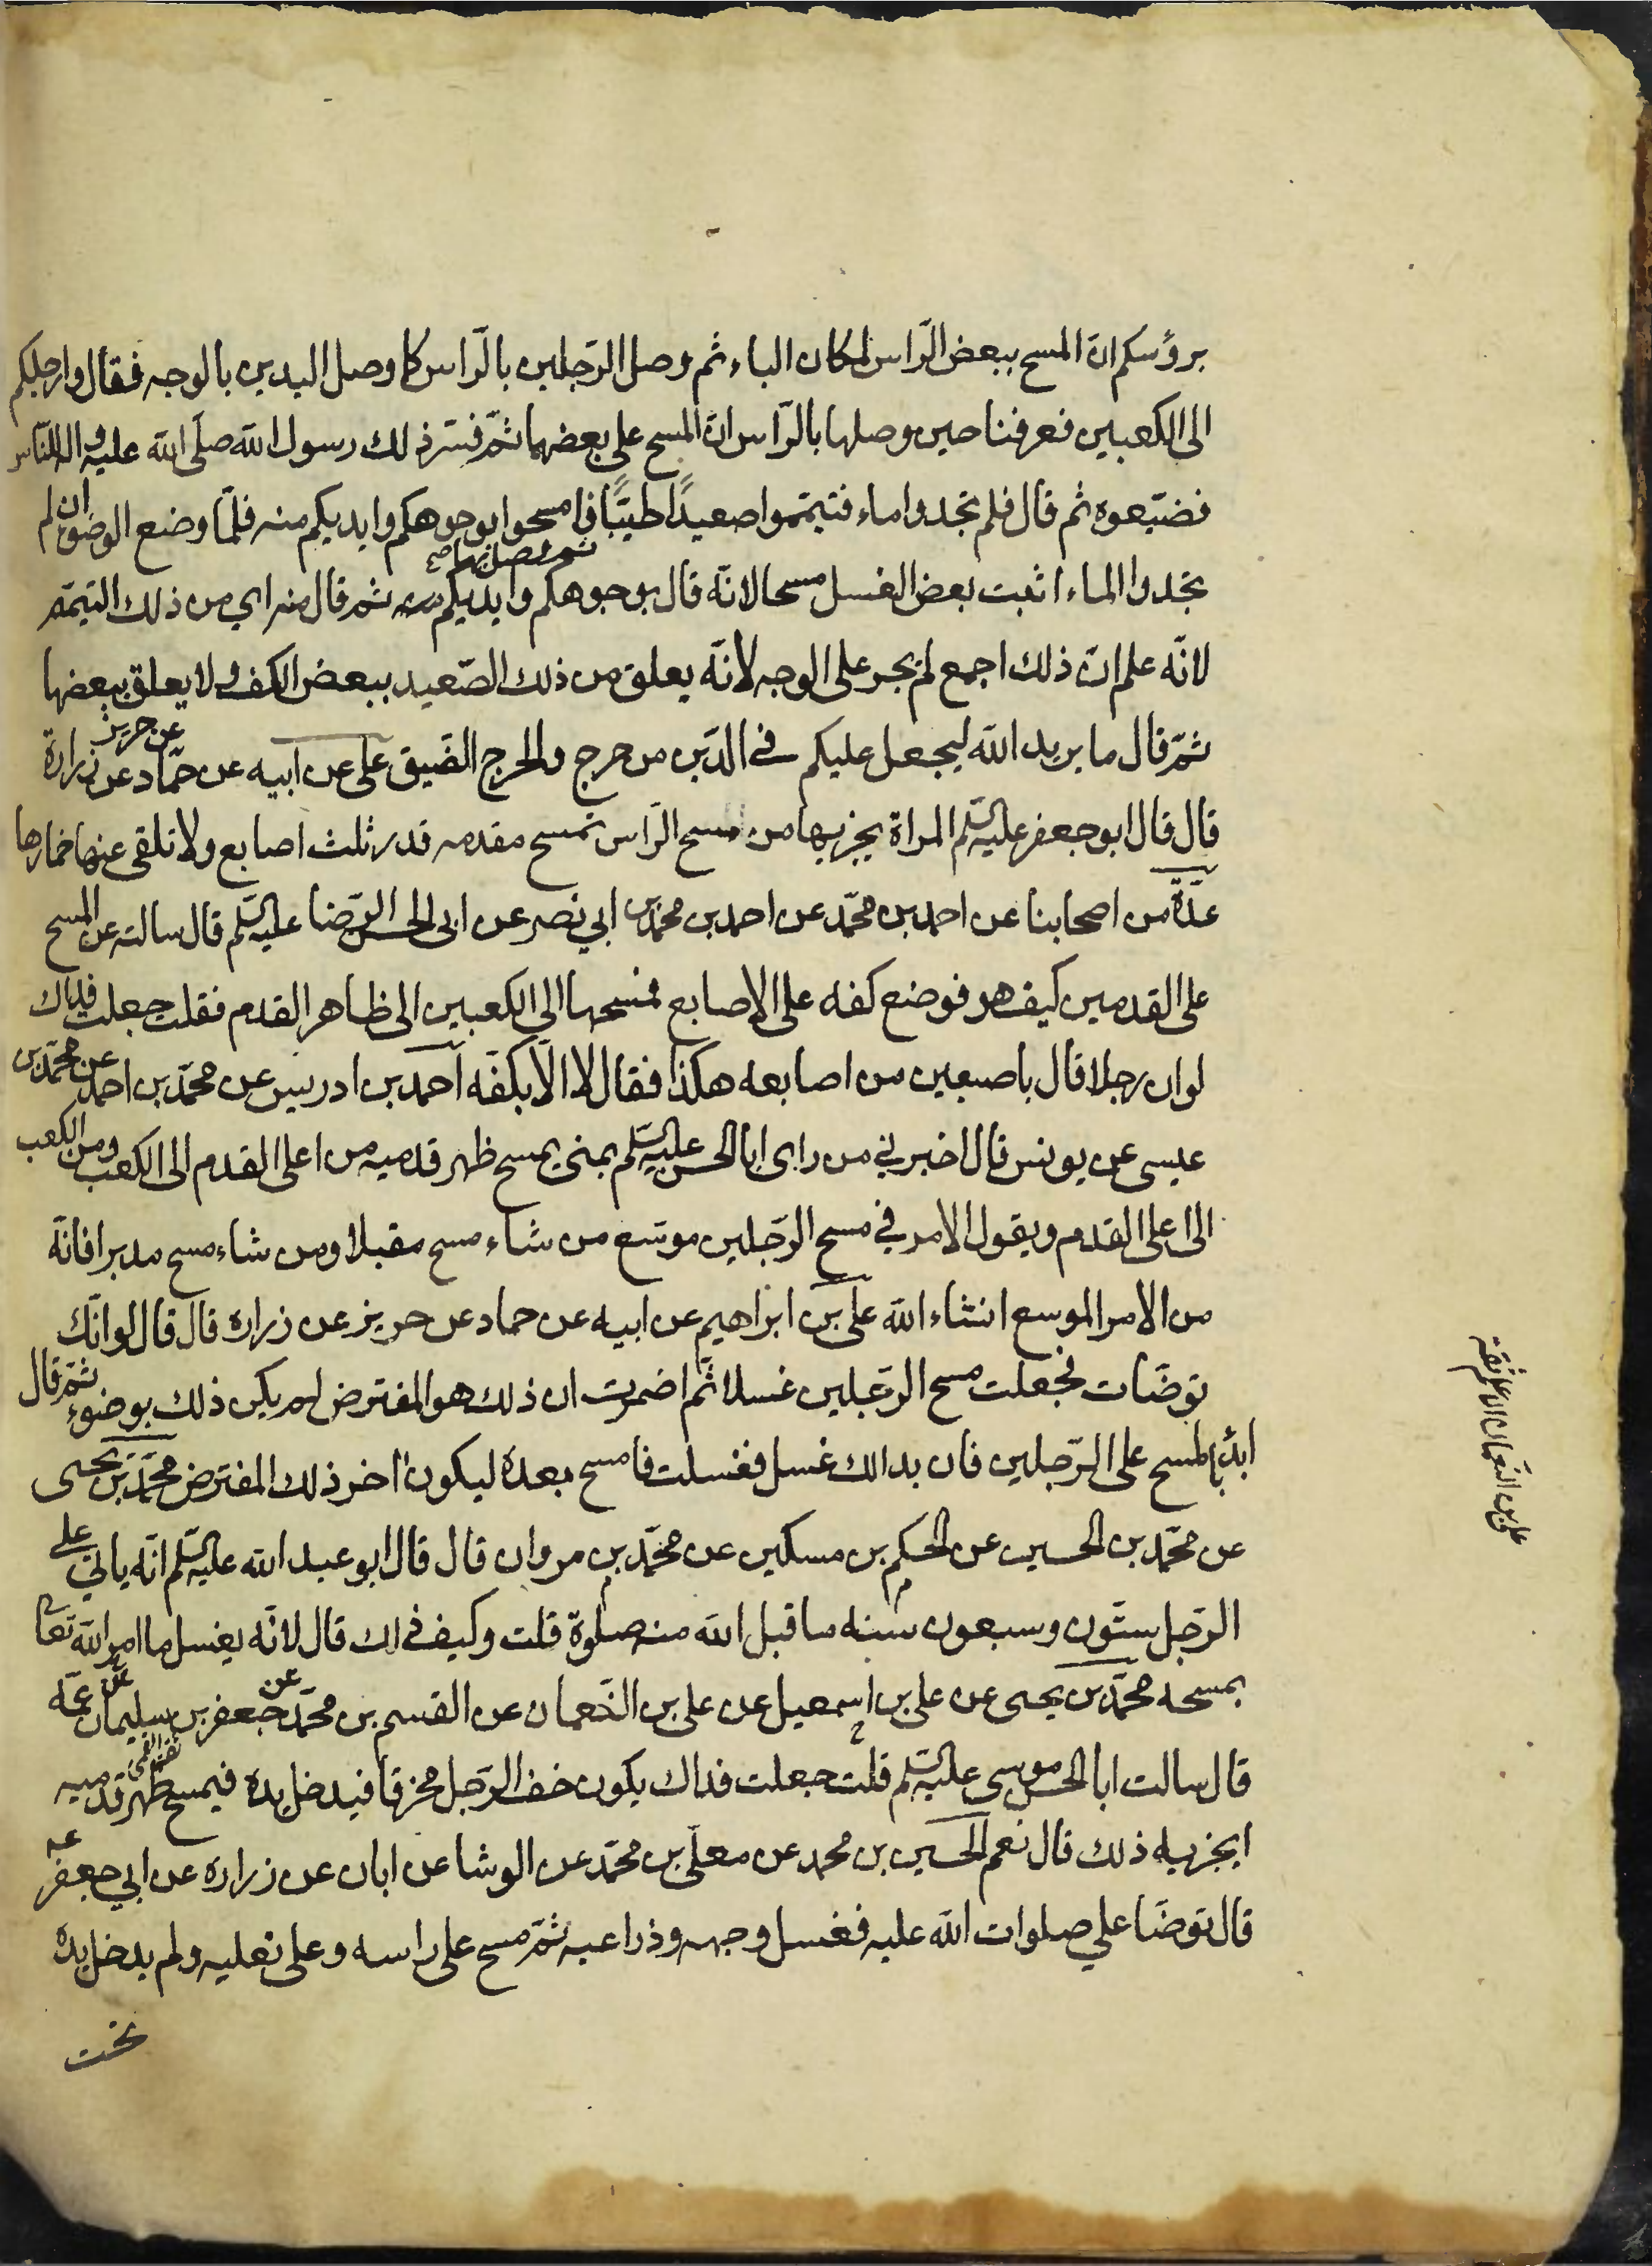 برؤسكم ان المسح ببعض الرّاس لمكان الباء ثم وصل الرّجلين بالرّاس كما وصل اليدين بالوجه فقال وارجلكم
الى الكعبين فعرفنا حين وصلها بالرّاس انّ المسح على بعضهما ثمّ فسّر ذلك رسول الله صلّى الله عليه واله للنّاس
فضيّعوه ثم قال فلم تجدوا ماء فتيمّموا صعيدًا طيّبًا فامسحوا بوجوهكم وايديكم منه فلمّا وضع الوضوء ان لم
تجدوا الماء اثبت بعض الغسل مسحا لانّه قال بوجوهكم وايديكم منه ثمّ قال منه اي من ذلك التيمّم
لانّه علم انّ ذلك اجمع لم يجر على الوجه لانّه يعلق من ذلك الصّعيد ببعض الكف ولا يعلق ببعضها
ثمّ قال ما يريد الله ليجعل عليكم في الدّين من حرج والحرج الضّيق علي عن ابيه عن حمّاد عن حريز عن زرارة
قال قال ابو جعفر عليه السّلم المراة يجزيها من مسح الرّاس تمسح مقدمه قدر ثلث اصابع ولا تلقى عنها خمارها
عدّة من اصحابنا عن احمد بن محمّد عن احمد بن محمّد بن ابي نصر عن ابى الحسن الرّضا عليه السّلم قال سالته عن المسح
على القدمين كيف هو فوضع كفه على الاصابع فمسحها الى الكعبين الى ظاهر القدم فقلت جعلت فداك
لو ان رجلا قال باصبعين من اصابعه هكذا فقال لا الّا بكفّه احمد بن ادريس عن محمّد بن احمد عن محمّد بن
عيسى عن يونس قال اخبرني من راى ابا الحسن عليه السّلم بمنى يمسح ظهر قدميه من اعلى القدم الى الكعب ومن الكعب
الى اعلى القدم ويقول الامر في مسح الرّجلين موسّع من شاء مسح مقبلا ومن شاء مسح مدبرا فانّه
من الامر الموسع انشاء الله علي بن ابراهيم عن ابيه عن حماد عن حريز عن زرارة قال قال لو انّك
توضّات فجعلت مسح الرّجلين غسلا ثمّ اضمرت ان ذلك هو المفترض لم يكن ذلك بوضوء ثمّ قال
ابدأ بالمسح على الرّجلين فان بدالك غسل فغسلت فامسح بعده ليكون اخر ذلك المفترض محمّد بن يحيى
عن محمّد بن الحسين عن الحكم بن مسكين عن محمّد بن مروان قال قال ابو عبد الله عليه السّلم انّه ياتي على
الرّجل ستّون وسبعون سنه ما قبل الله منه صلوة قلت وكيف ذاك قال لانّه يغسل ما امر الله تعالى
بمسحه محمّد بن يحيى عن علي بن اسمعيل عن علي بن النّعمان عن القسم بن محمّد عن جعفر بن سليمان عن عمّه
قال سالت ابا الحسن موسى عليه السّلم قلت جعلت فداك يكون خف الرّجل مخرقا فيدخل يده فيمسح ظهر قدميه
ايجزيه ذلك قال نعم الحسين بن محمد عن معلّى بن محمّد عن الوشا عن ابان عن زرارة عن ابي جعفر عـ
قال توضّا علي صلوات الله عليه فغسل وجهه وذراعيه ثمّ مسح على راسه وعلى نعليه ولم يدخل يده
تحت
علي بن النعمان الاعلم ثقة